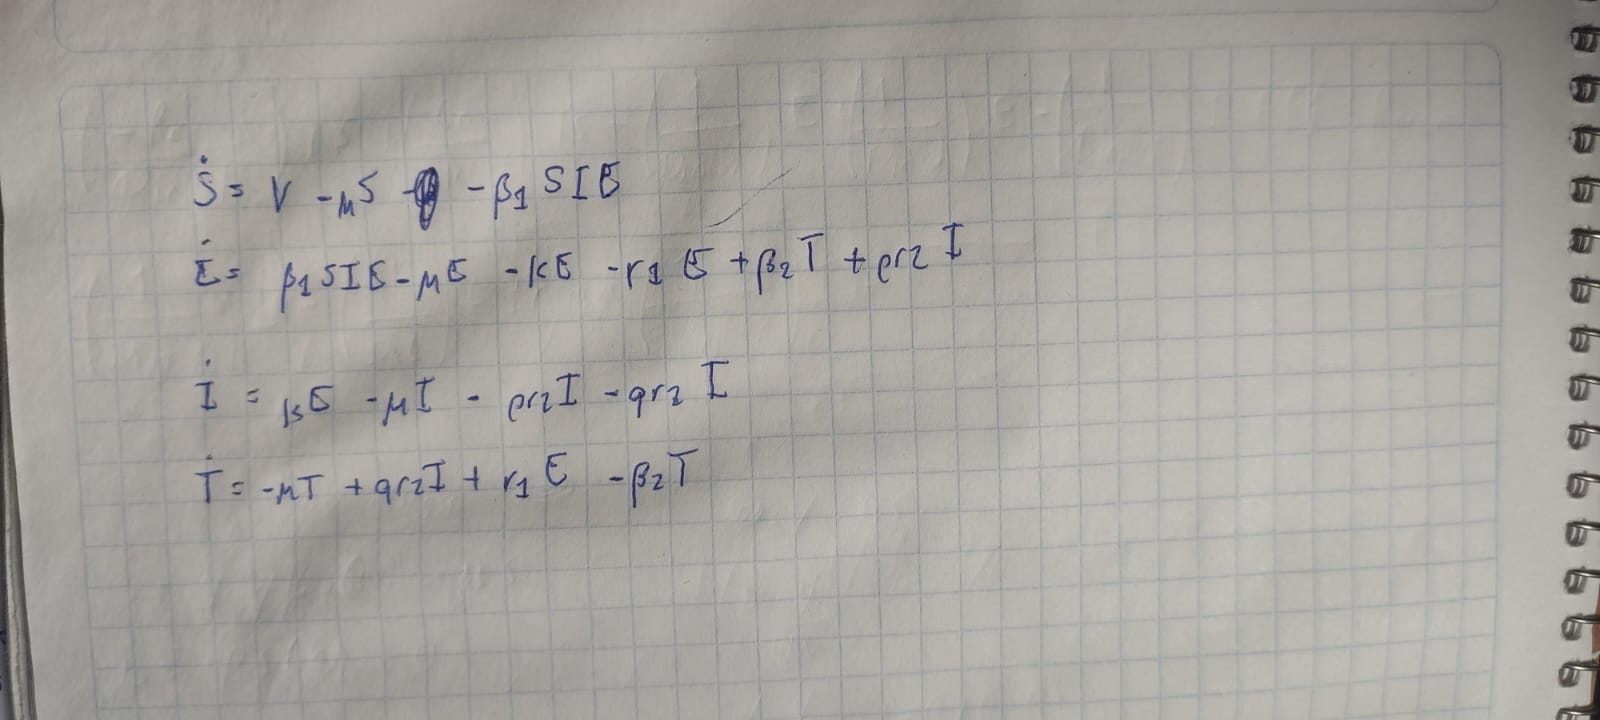 Ṡ = V - μS - β1 SIE
Ė = β1SIE - μE - kE - r1 E + β2T + pr2 I
İ = kE - μI - pr2I - qr2 I
Ṫ = -μT + qr2I + r1 E - β2T